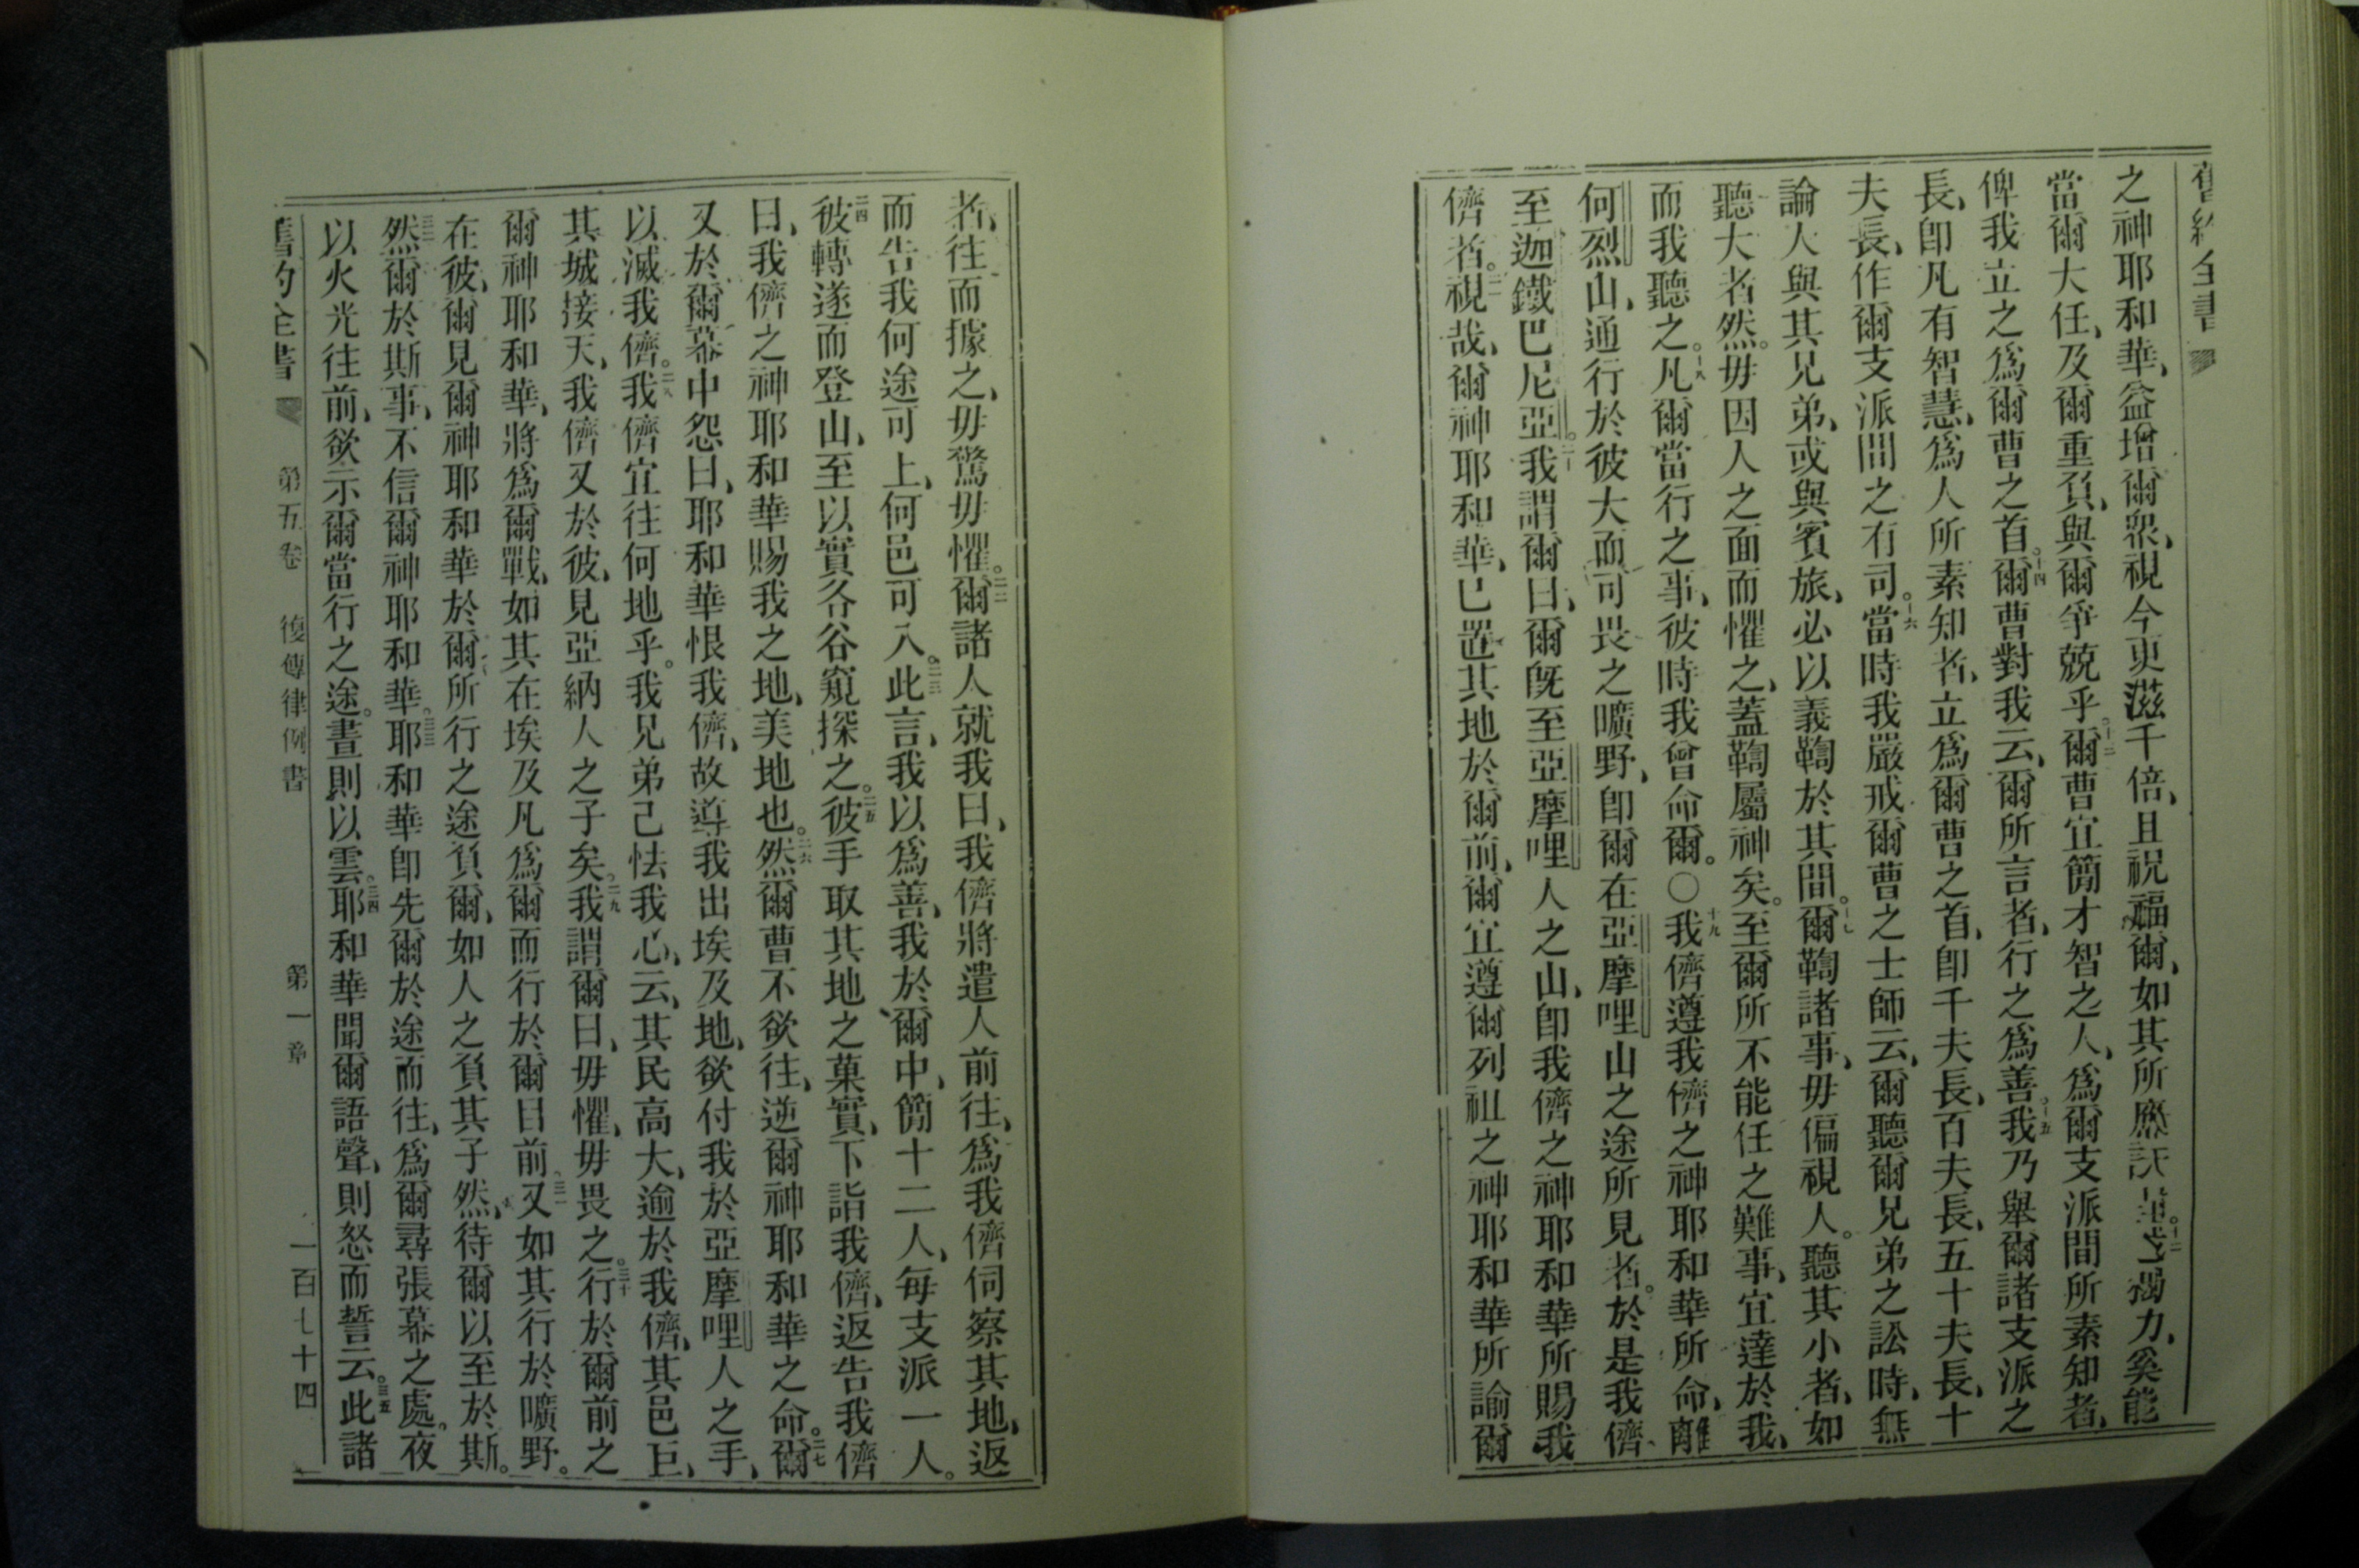 舊約全書
之神耶和華、益增爾眾、視今更滋千倍、且祝福爾、如其所應許。十二我一己獨力、奚能
當爾大任、及爾重負、與爾爭兢乎。十三爾曹宜簡才智之人、爲爾支派間所素知者、
俾我立之爲爾曹之首。十四爾曹對我云、爾所言者、行之爲善。十五我乃舉爾諸支派之
長、卽凡有智慧、爲人所素知者、立爲爾曹之首、卽千夫長、百夫長、五十夫長、十
夫長、作爾支派間之有司。十六當時我嚴戒爾曹之士師云、爾聽爾兄弟之訟時、無
論人與其兄弟、或與賓旅、必以義鞫於其間。十七爾鞫諸事、毋偏視人。聽其小者、如
聽大者然。毋因人之面而懼之、蓋鞫屬神矣。至爾所不能任之難事、宜達於我、
而我聽之。十八凡爾當行之事、彼時我曾命爾。○十九我儕遵我儕之神耶和華所命、離
何烈山、通行於彼大而可畏之曠野、卽爾在亞摩哩山之途所見者。於是我儕
至迦鐵巴尼亞。二十我謂爾曰、爾旣至亞摩哩人之山、卽我儕之神耶和華所賜我
儕者。二一視哉、爾神耶和華、已置其地於爾前、爾宜遵爾列祖之神耶和華所諭爾
者、往而據之、毋驚毋懼。二二爾諸人就我曰、我儕將遣人前往、爲我儕伺察其地、返
而告我何途可上、何邑可入。二三此言、我以爲善、我於爾中、簡十二人、每支派一人。
二四彼轉遂而登山、至以實各谷窺探之。二五彼手取其地之菓實、下詣我儕、返告我儕
曰、我儕之神耶和華賜我之地、美地也。二六然爾曹不欲往、逆爾神耶和華之命。二七爾
又於爾幕中怨曰、耶和華恨我儕、故導我出埃及地、欲付我於亞摩哩人之手、
以滅我儕。二八我儕宜往何地乎。我兄弟己怯我心、云、其民高大、逾於我儕、其邑巨、
其城接天、我儕又於彼、見亞納人之子矣。二九我謂爾曰、毋懼、毋畏之。三十行於爾前之
爾神耶和華、將爲爾戰、如其在埃及凡爲爾而行於爾目前。三一又如其行於曠野。
在彼、爾見爾神耶和華於爾所行之途負爾、如人之負其子然、待爾以至於斯。
三二然爾於斯事、不信爾神耶和華。三三耶和華卽先爾於途而往、爲爾尋張幕之處。夜
以火光往前、欲示爾當行之途。晝則以雲。三四耶和華聞爾語聲、則怒而誓云。三五此諸
舊約全書 第五卷 復傳律例書 第一章 一百七十四